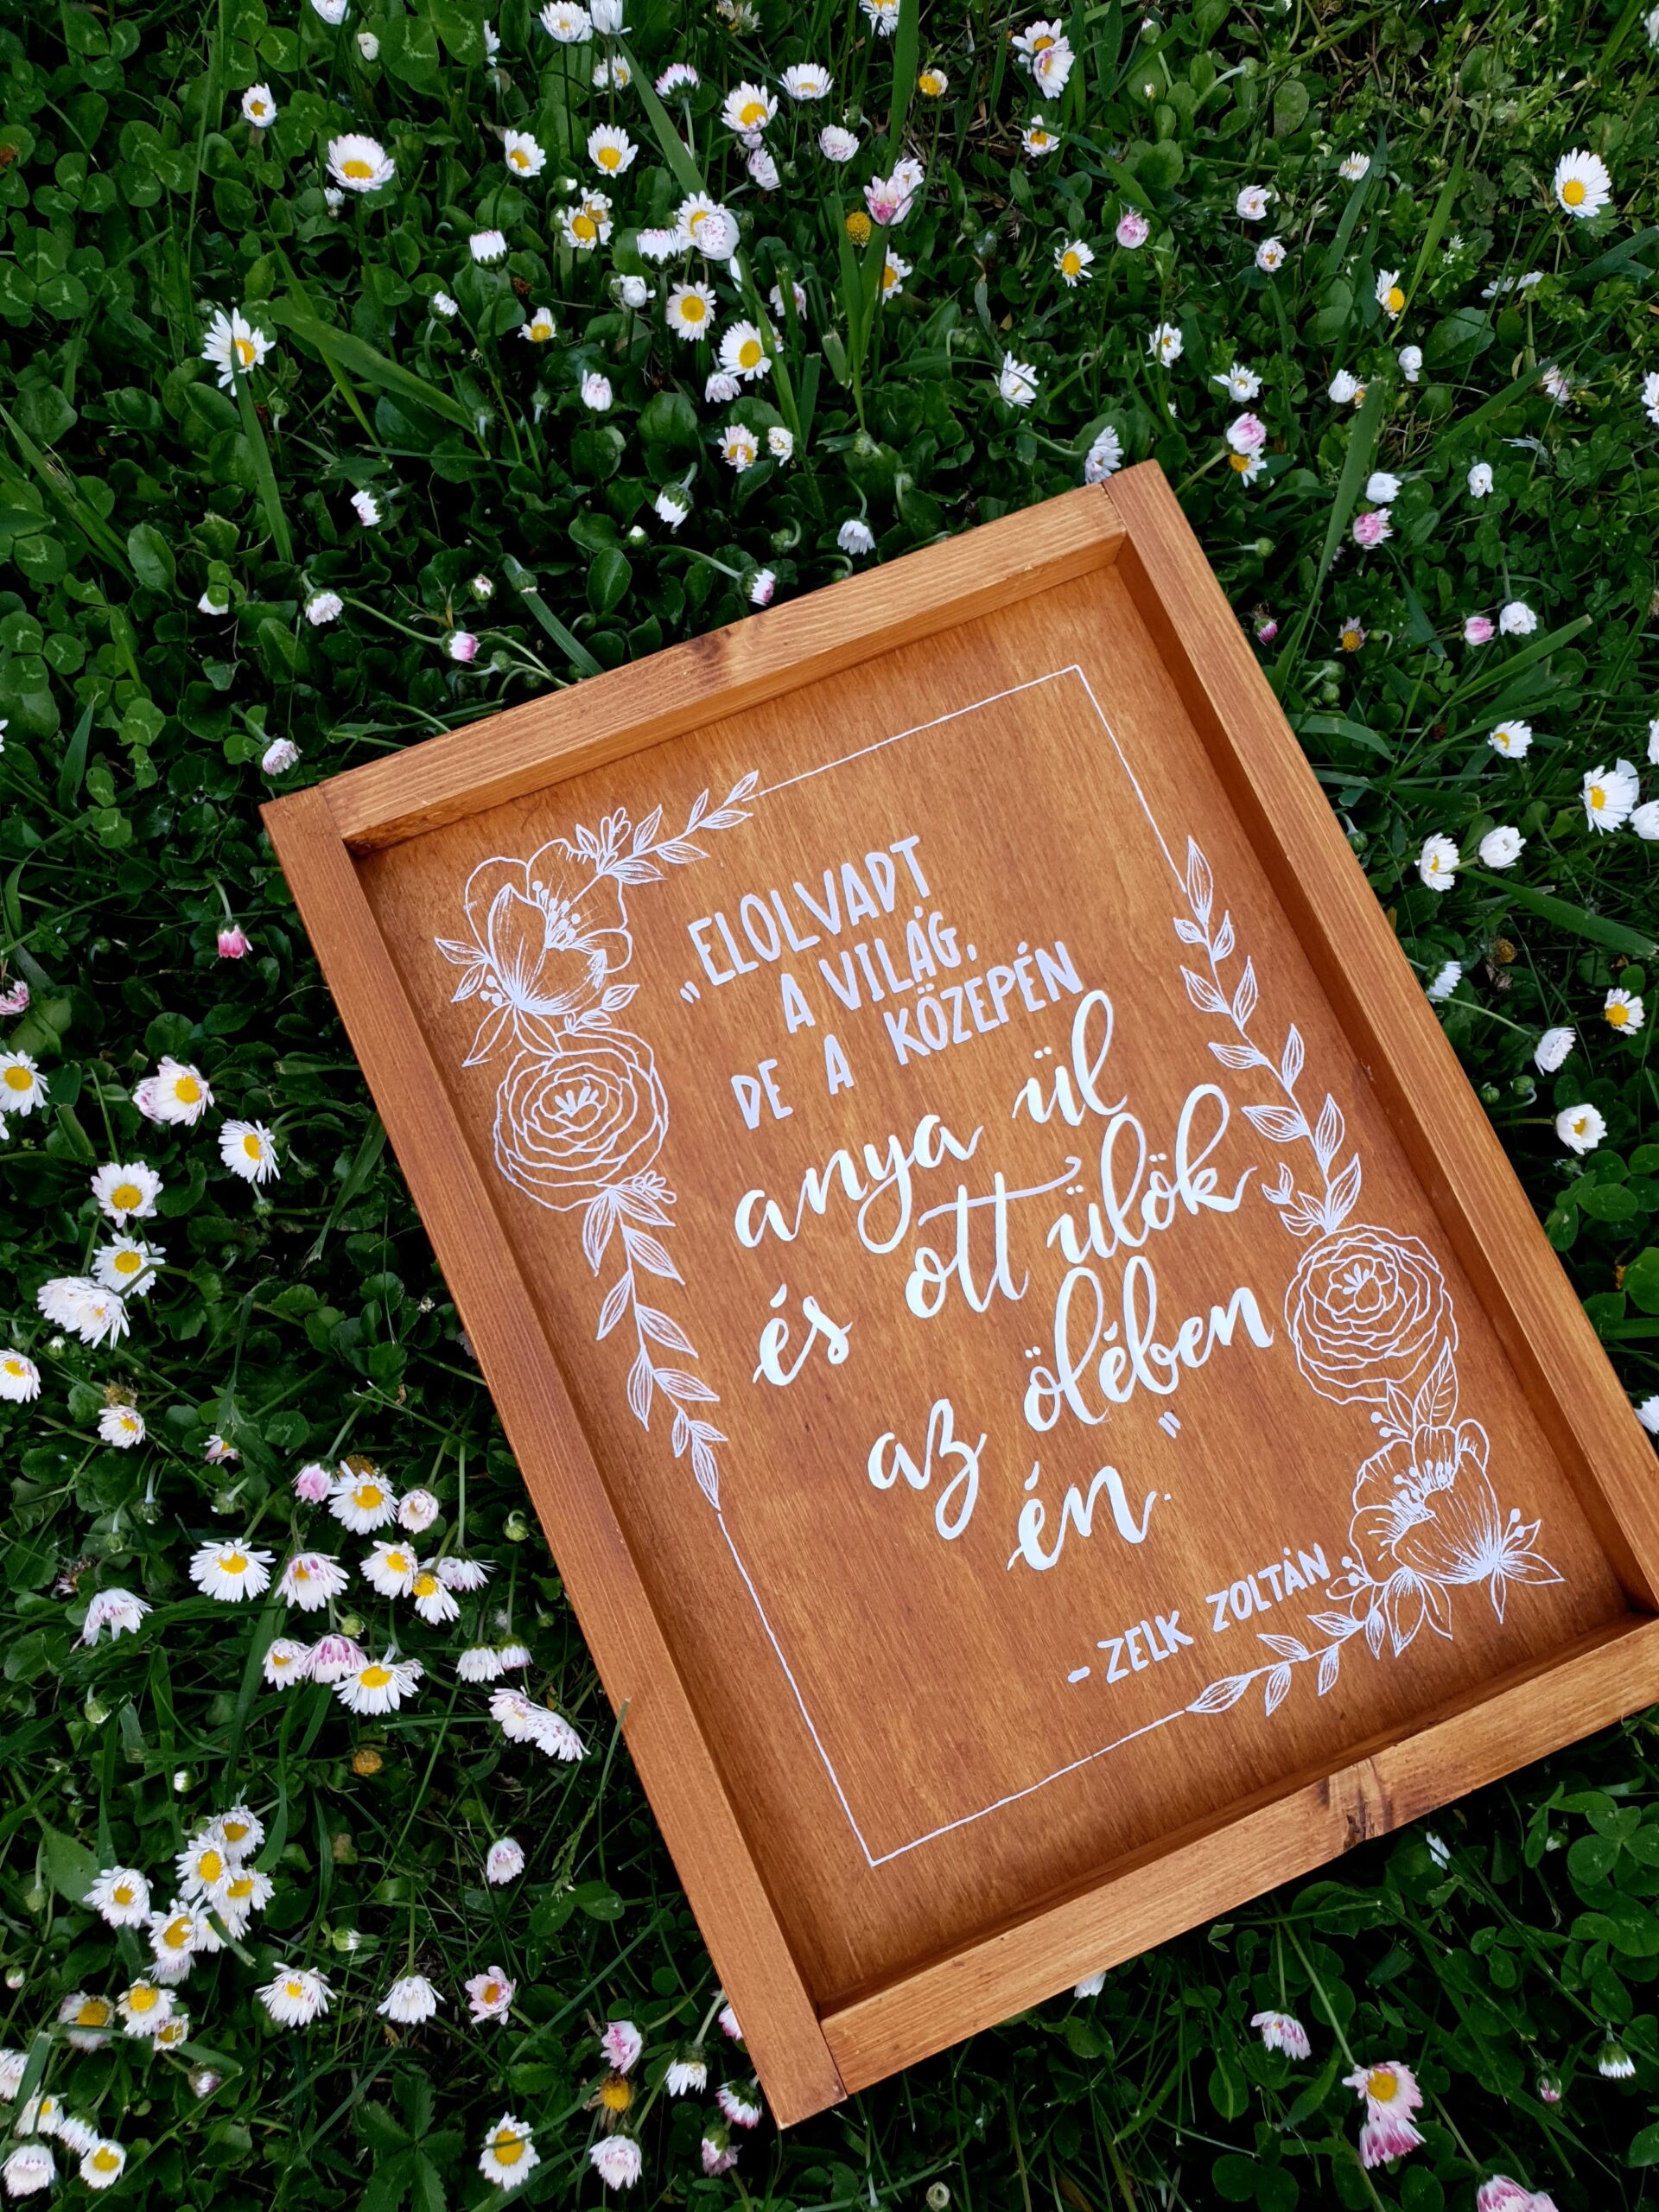 „ELOLVADT
A VILÁG,
DE A KÖZEPÉN
anya ül
és ott ülök
az ölében
én."
- ZELK ZOLTÁN